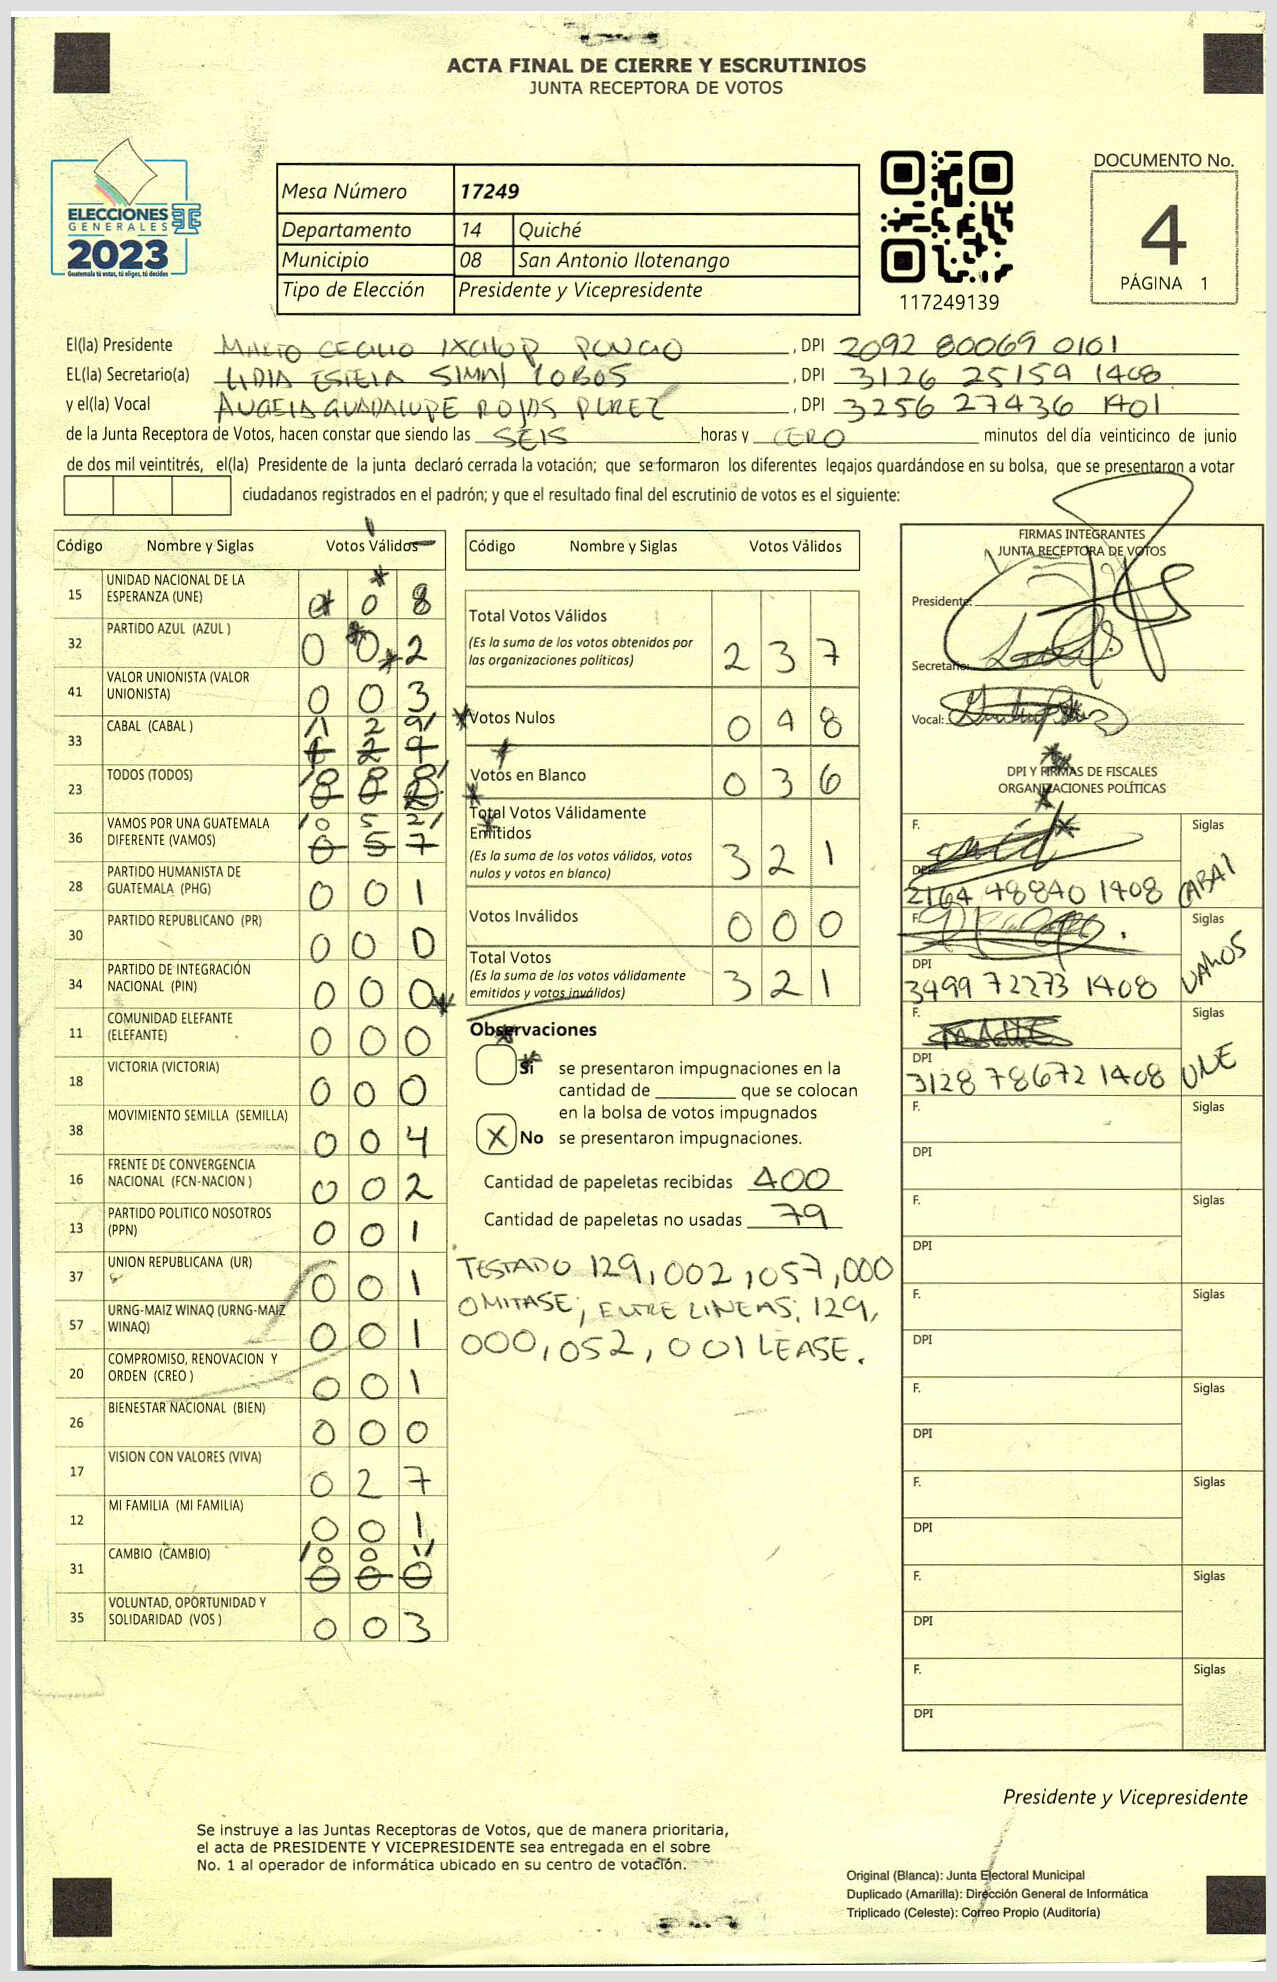 ACTA FINAL DE CIERRE Y ESCRUTINIOS
JUNTA RECEPTORA DE VOTOS
ELECCIONES
GENERALES
2023
Guatemala tú votas, tú eliges, tú decides
Mesa Número 17249
Departamento 14 Quiché
Municipio 08 San Antonio Ilotenango
Tipo de Elección Presidente y Vicepresidente
117249139
DOCUMENTO No.
4
PÁGINA 1
El(la) Presidente CECILIO, DPI 2092 80069 0101
EL(la) Secretario(a) LIDIA ESTELA LOBOS, DPI 3126 25159 1408
y el(la) Vocal ANGELA GUADALUPE ROJAS PEREZ, DPI 3256 27436 1401
de la Junta Receptora de Votos, hacen constar que siendo las SEIS horas y CERO minutos del día veinticinco de junio
de dos mil veintitrés, el(la) Presidente de la junta declaró cerrada la votación; que se formaron los diferentes legajos guardándose en su bolsa, que se presentaron a votar
ciudadanos registrados en el padrón; y que el resultado final del escrutinio de votos es el siguiente:
Código Nombre y Siglas Votos Válidos
15 UNIDAD NACIONAL DE LA ESPERANZA (UNE) 0 0 8
32 PARTIDO AZUL (AZUL ) 0 0 2
41 VALOR UNIONISTA (VALOR UNIONISTA) 0 0 3
33 CABAL (CABAL ) 1 2 9
23 TODOS (TODOS)
36 VAMOS POR UNA GUATEMALA DIFERENTE (VAMOS) 0 5 2
0 5 7
28 PARTIDO HUMANISTA DE GUATEMALA (PHG) 0 0 1
30 PARTIDO REPUBLICANO (PR) 0 0 0
34 PARTIDO DE INTEGRACIÓN NACIONAL (PIN) 0 0 0
11 COMUNIDAD ELEFANTE (ELEFANTE) 0 0 0
18 VICTORIA (VICTORIA) 0 0 0
38 MOVIMIENTO SEMILLA (SEMILLA) 0 0 4
16 FRENTE DE CONVERGENCIA NACIONAL (FCN-NACION ) 0 0 2
13 PARTIDO POLITICO NOSOTROS (PPN) 0 0 1
37 UNION REPUBLICANA (UR) 0 0 1
57 URNG-MAIZ WINAQ (URNG-MAIZ WINAQ) 0 0 1
20 COMPROMISO, RENOVACION Y ORDEN (CREO ) 0 0 1
26 BIENESTAR NACIONAL (BIEN) 0 0 0
17 VISION CON VALORES (VIVA) 0 2 7
12 MI FAMILIA (MI FAMILIA) 0 0 1
31 CAMBIO (CAMBIO) 0 0 1
0 0 0
35 VOLUNTAD, OPORTUNIDAD Y SOLIDARIDAD (VOS ) 0 0 3
Código Nombre y Siglas Votos Válidos
Total Votos Válidos 2 3 7
(Es la suma de los votos obtenidos por
las organizaciones políticas)
Votos Nulos 0 4 8
Votos en Blanco 0 3 6
Total Votos Válidamente
Emitidos 3 2 1
(Es la suma de los votos válidos, votos
nulos y votos en blanco)
Votos Inválidos 0 0 0
Total Votos 3 2 1
(Es la suma de los votos válidamente
emitidos y votos inválidos)
Observaciones
Si se presentaron impugnaciones en la
cantidad de ________ que se colocan
en la bolsa de votos impugnados
X No se presentaron impugnaciones.
Cantidad de papeletas recibidas 400
Cantidad de papeletas no usadas 79
TESTADO 129,002,057,000
OMITASE; ENTRE LINEAS: 129,
000,052,001 LEASE.
FIRMAS INTEGRANTES
JUNTA RECEPTORA DE VOTOS
Presidente:
Secretario:
Vocal:
DPI Y FIRMAS DE FISCALES
ORGANIZACIONES POLÍTICAS
F. Siglas
DPI 2164 48840 1408 CABAL
F. Siglas
DPI 3499 72273 1408 VAMOS
F. Siglas
DPI 3128 78672 1408 UNE
F. Siglas
DPI
F. Siglas
DPI
F. Siglas
DPI
F. Siglas
DPI
F. Siglas
DPI
F. Siglas
DPI
F. Siglas
DPI
Presidente y Vicepresidente
Se instruye a las Juntas Receptoras de Votos, que de manera prioritaria,
el acta de PRESIDENTE Y VICEPRESIDENTE sea entregada en el sobre
No. 1 al operador de informática ubicado en su centro de votación.
Original (Blanca): Junta Electoral Municipal
Duplicado (Amarilla): Dirección General de Informática
Triplicado (Celeste): Correo Propio (Auditoría)